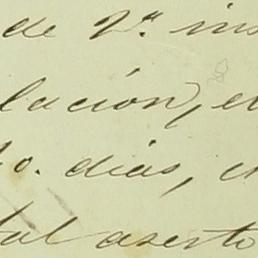 de 2ª ins
lación, e
o. dias, e
tal aserto